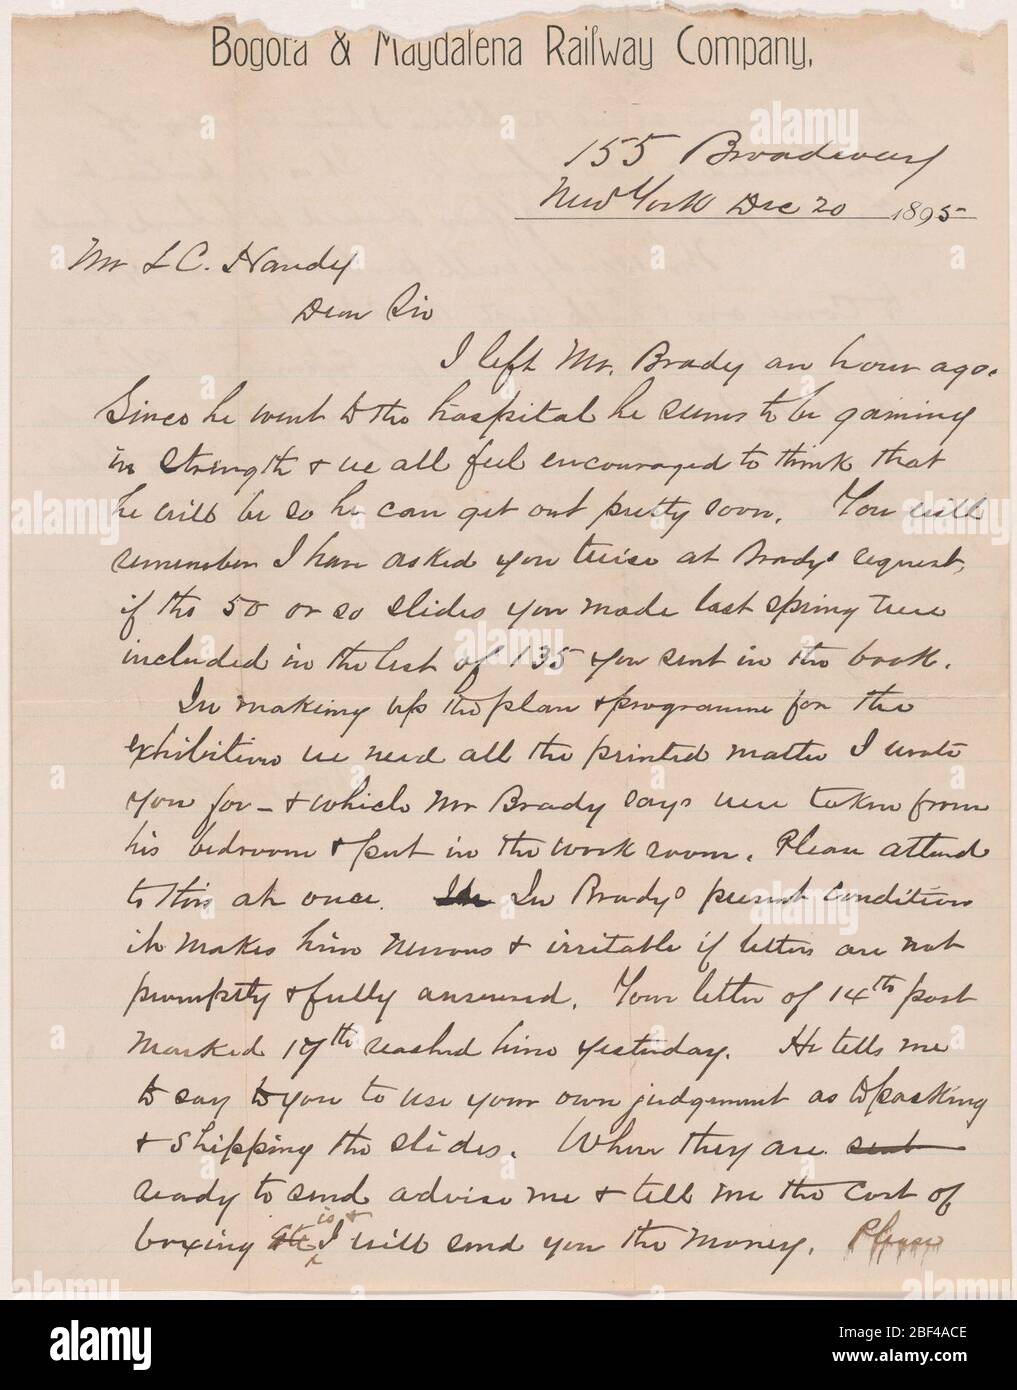 Bogota & Magdalena Railway Company.
155 Broadway
New York Dec 20 1895
Mr L C. Handy
Dear Sir
I left Mr. Brady an hour ago.
Since he went to the hospital he seems to be gaining
in strength & we all feel encouraged to think that
he will be so he can get out pretty soon. You will
remember I have asked you twice at Bradys request,
if the 50 or so slides you made last spring were
included in the list of 135 you sent in the book.
In making up the plan & programme for the
exhibition we need all the printed matter I wrote
you for - & which Mr Brady says were taken from
his bedroom & put in the work room. Please attend
to this at once. In Bradys present condition
it makes him nervous & irritable if letters are not
promptly & fully answered. Your letter of 14th post
marked 17th reached him yesterday. He tells me
to say to you to use your own judgement as to packing
& shipping the slides. When they are sent
ready to send advise me & tell me the cost of
boxing is & I will send you the money. Please
alamy
a
alamy
Image ID: 2BF4ACE
www.alamy.com